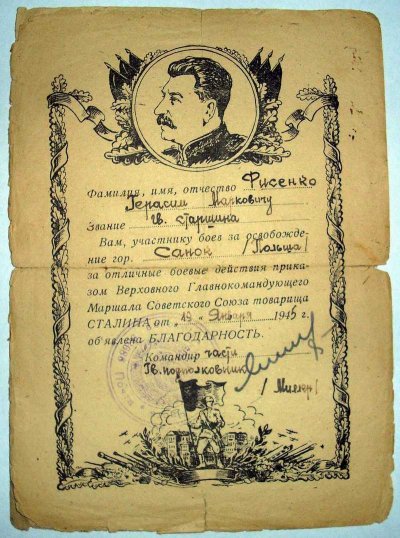 Фамилия, имя, отчество Фисенко
Герасим Маркович
Звание Гв. старшина
Вам, участнику боев за освобожде-
ние гор. Санок /Польша/
за отличные боевые действия прика-
зом Верховного Главнокомандующего
Маршала Советского Союза товарища
СТАЛИНА от „19" Января 1945 г.
об'явлена БЛАГОДАРНОСТЬ.
Командир части
Гв. подполковник